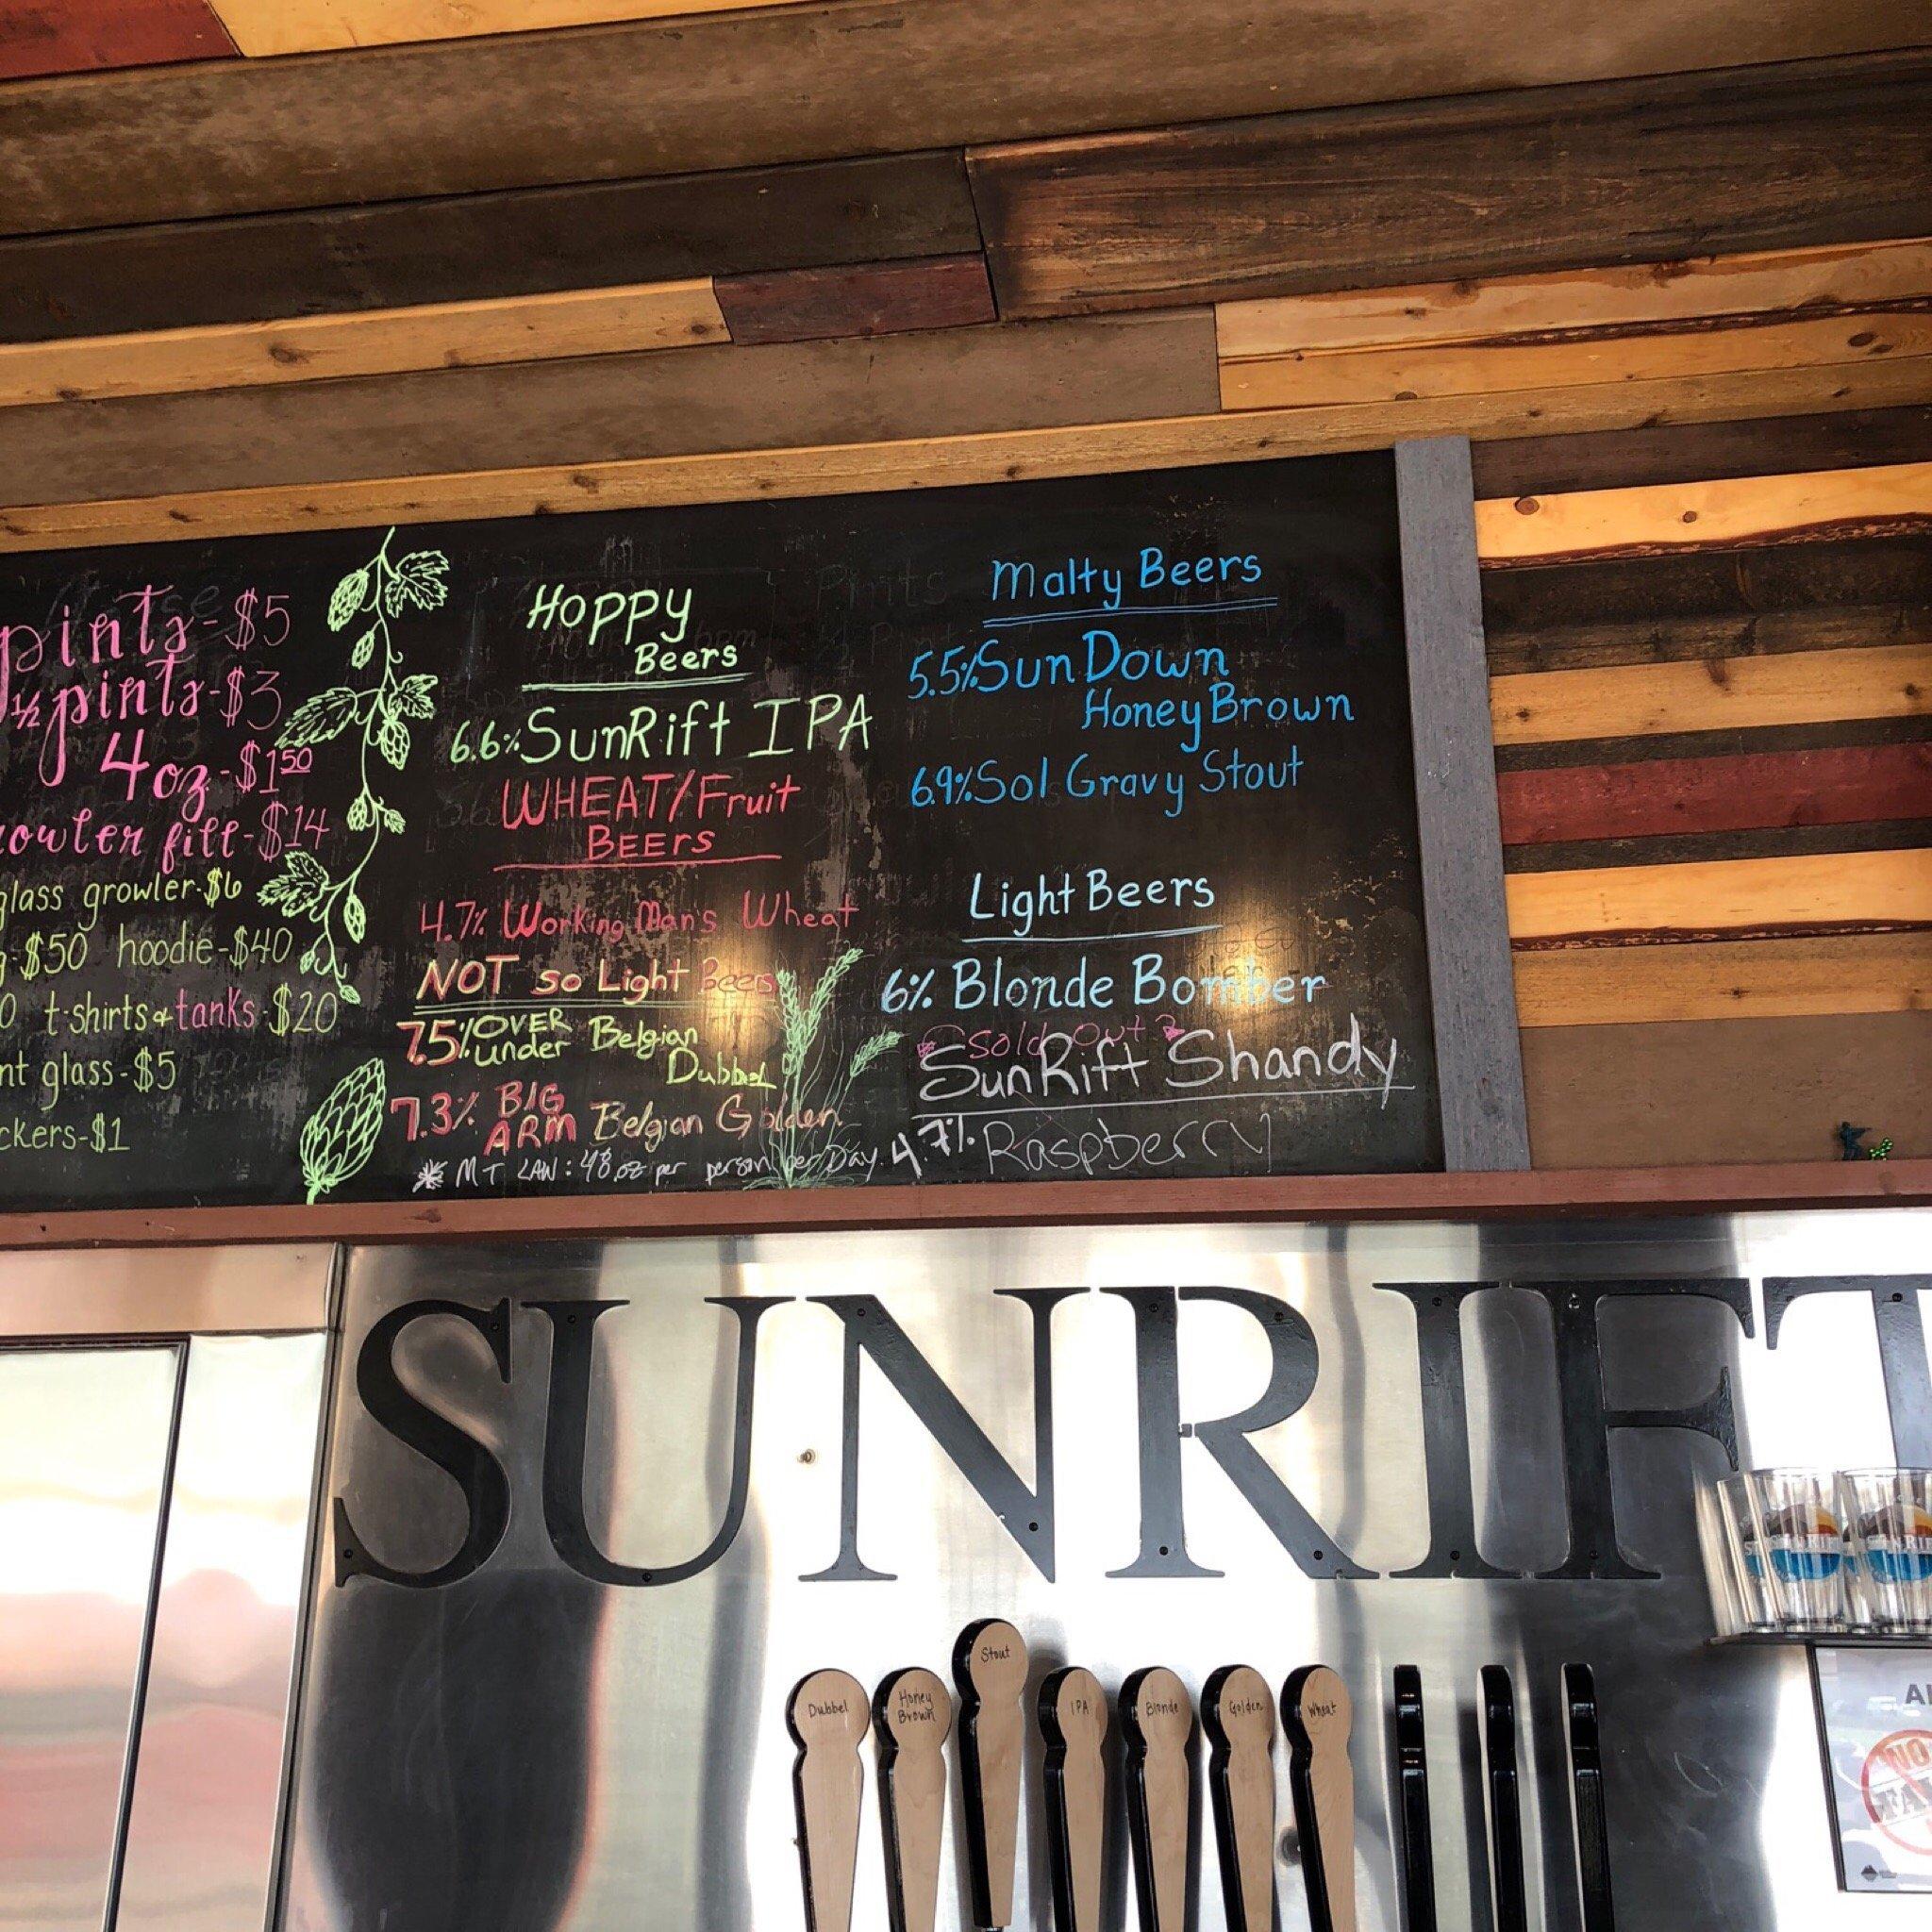 pints-$5
½ pints-$3
4oz-$1.50
fill-$14
glass growler-$6
$50 hoodie-$40
t-shirts & tanks-$20
glass-$5
$1
Hoppy
Beers
6.6% SunRift IPA
WHEAT/Fruit
BEErs
4.7% Working Man's Wheat
NOT so Light Beers
7.5% OVER
under Belgian
Dubbel
7.3% BIG
ARM Belgian Golden
* MT LAW: 48 oz per person per Day.
Malty Beers
5.5% SunDown
Honey Brown
6.9% Sol Gravy Stout
Light Beers
6% Blonde Bomber
Sold Out
SunRift Shandy
4.7% Raspberry
SUNRIFT
Dubbel
Honey
Brown
Stout
IPA
Blonde
Golden
Wheat